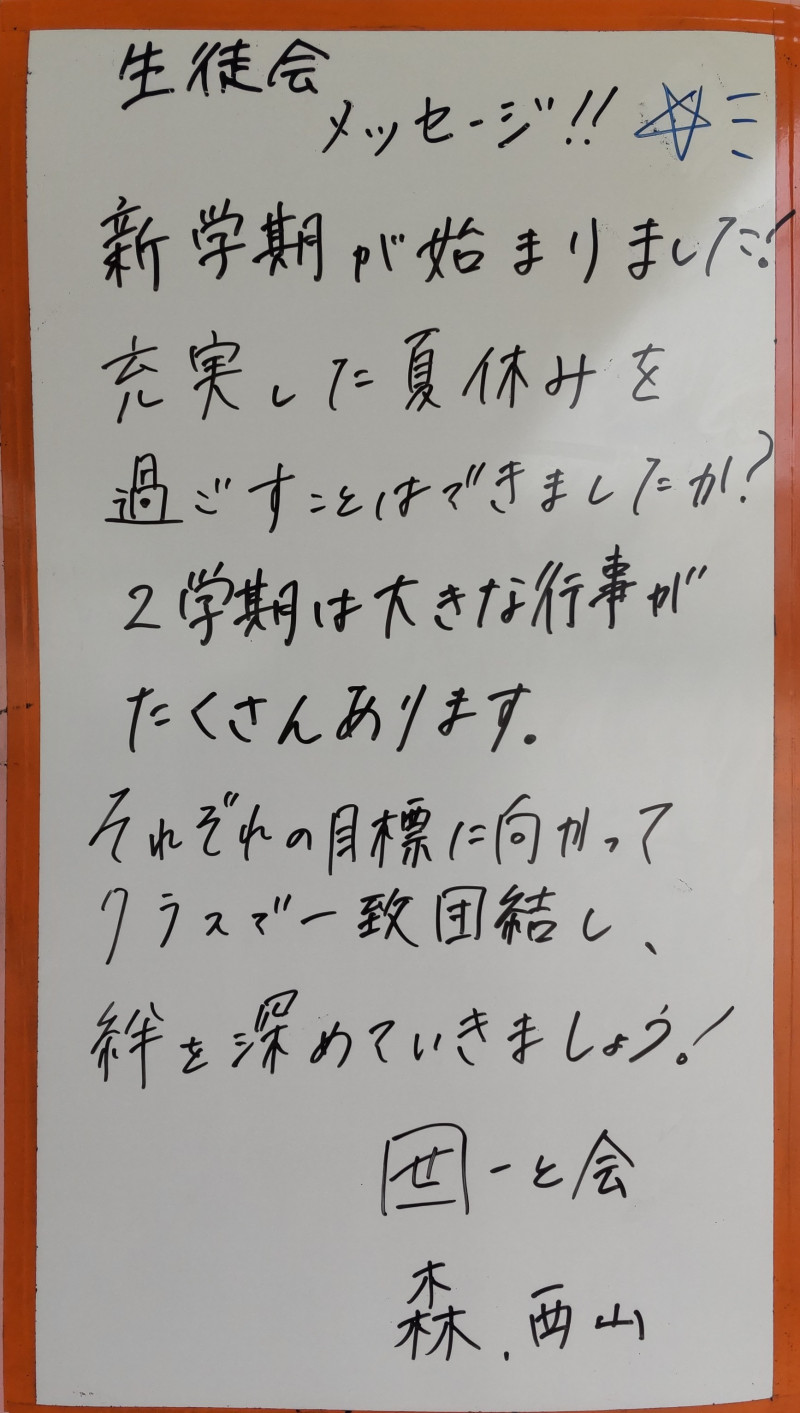 生徒会
メッセージ!!
新学期が始まりました!
充実した夏休みを
過ごすことはできましたか?
2学期は大きな行事が
たくさんあります。
それぞれの目標に向かって
クラスで一致団結し、
絆を深めていきましょう!
せーと会
森.西山